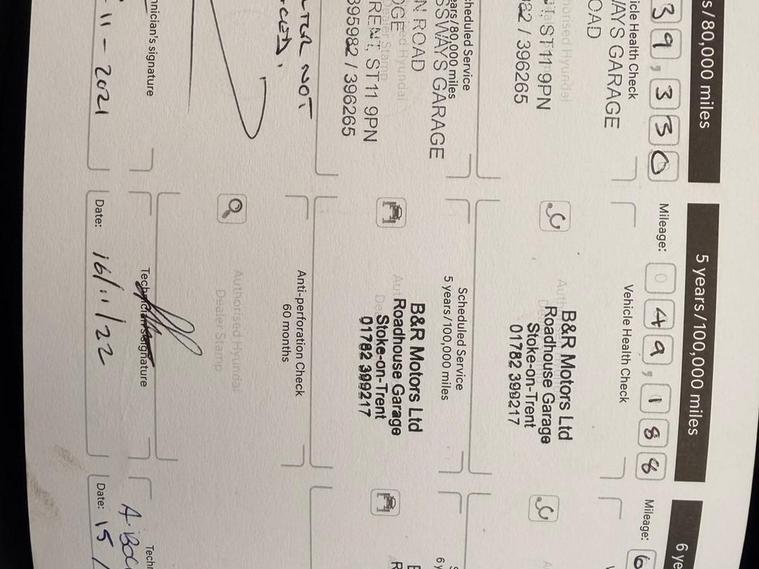 s/80,000 miles
39,330
Vehicle Health Check
WAYS GARAGE
OAD
Authorised Hyundai
ST11 9PN
82 / 396265
Scheduled Service
years/80,000 miles
SSWAYS GARAGE
N ROAD
DGE
RENT, ST11 9PN
395982 / 396265
NOT
Technician's signature
11 - 2021
5 years/100,000 miles
Mileage: 049,188
Vehicle Health Check
B&R Motors Ltd
Roadhouse Garage
Stoke-on-Trent
01782 399217
Scheduled Service
5 years/100,000 miles
B&R Motors Ltd
Roadhouse Garage
Stoke-on-Trent
01782 399217
Anti-perforation Check
60 months
Authorised Hyundai
Dealer Stamp
Technician's signature
Date: 16/11/22
6 ye
Mileage: 6
Date: 15/